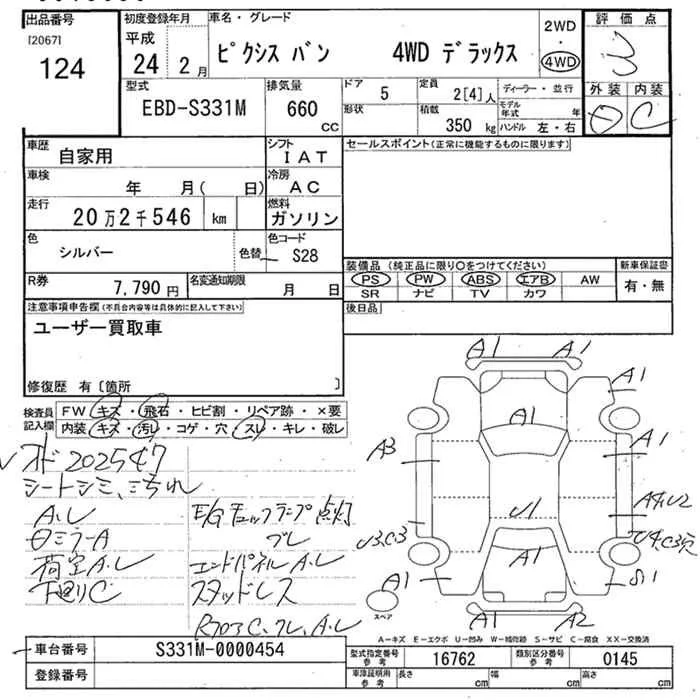 出品番号 初度登録年月 車名・グレード 2WD 評価点
[2067] 平成 ・
124 24年 2月 ピクシス バン 4WD デラックス 4WD 3
型式 排気量 ドア 5 定員 2[4]人 ディーラー・並行 外装 内装
EBD-S331M 660cc 形状 積載 350kg モデル年式 年 ハンドル 左・右 D C
車歴 自家用 シフト IAT セールスポイント(正常に機能するものに限ります)
車検 年 月( 日) 冷房 AC
走行 20万2千546 km 燃料 ガソリン
色 シルバー 色替 色コード S28
装備品 (純正品に限り○をつけてください) 新車保証書
R券 7,790円 名変通知期限 月 日 PS PW ABS エアB AW 有・無
SR ナビ TV カワ
注意事項申告欄(不具合内容等は具体的に記入して下さい) 後日品
ユーザー買取車
修復歴 有 [箇所 ]
検査員 記入欄 FW キズ・飛石・ヒビ割・リペア跡・×要
内装 キズ・汚レ・コゲ・穴・スレ・キレ・破レ
202547
シートシミ、こちれ
A.L E/Gチェックランプ点灯
ミラーA フレ
荷室A.L エンドパネルA.L
下廻りC スタッドレス
フロアC、フレ、A.L
A1 A1 A1
A1 A1
A3
U1
U3.C3
A1 A1
S1
A1 A2
スペア
A-キズ E-エクボ U-凹み W-補修跡 S-サビ C-腐食 XX-交換済
車台番号 S331M-0000454 型式指定番号 参考 16762 類別区分番号 参考 0145
登録番号 車庫証明用 参考 長さ cm 幅 cm 高さ cm